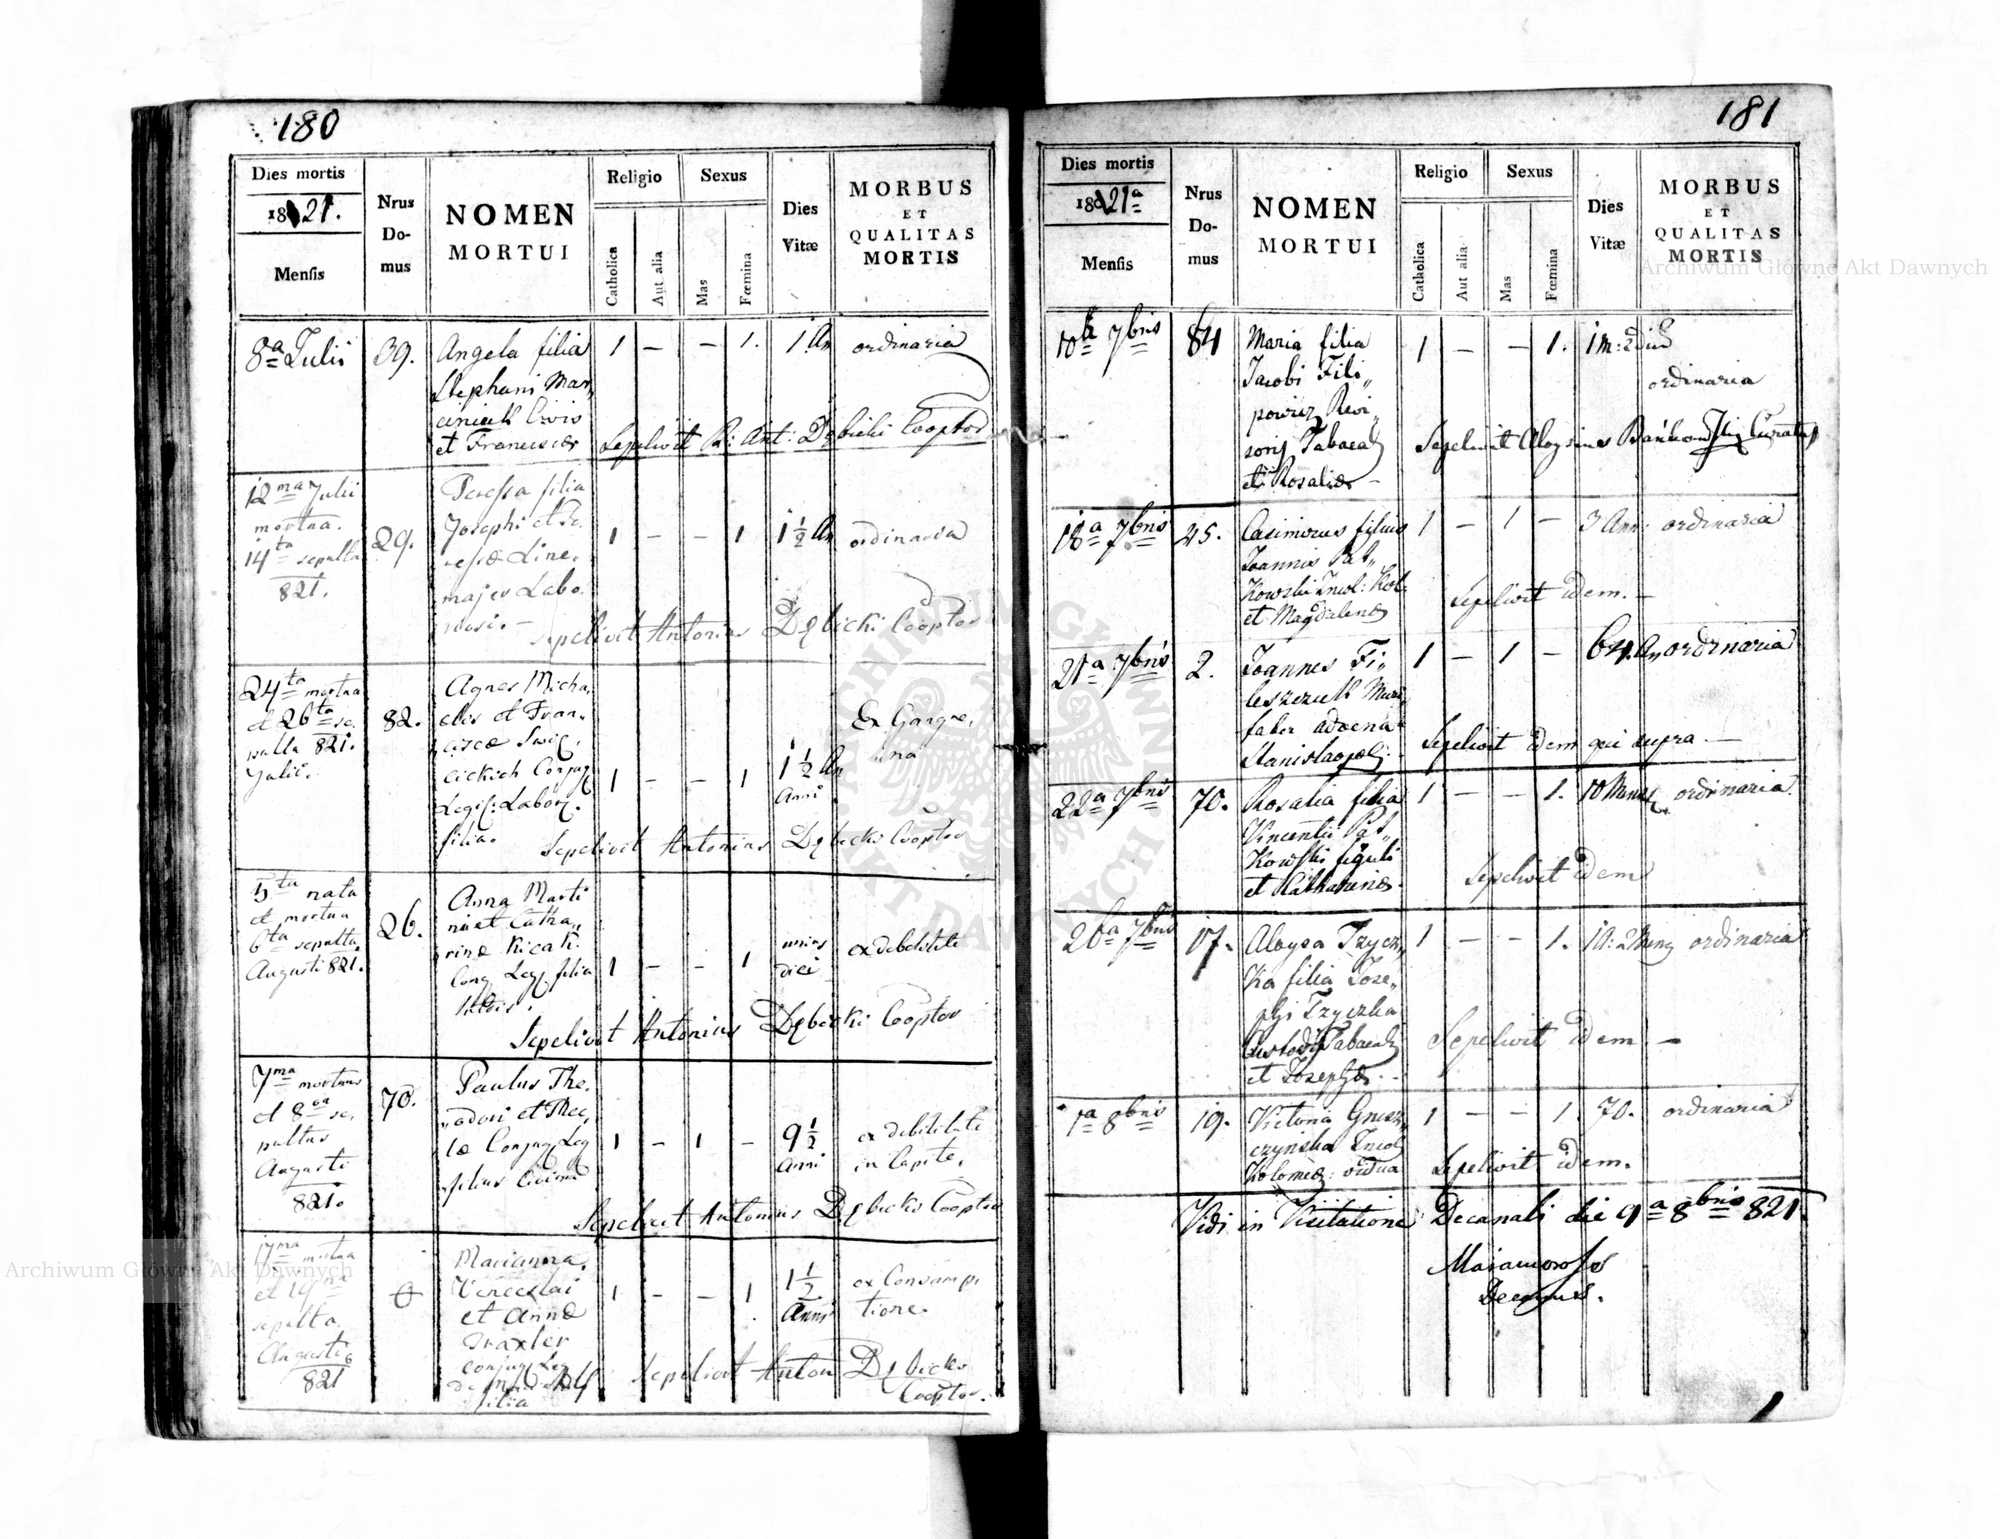 180
Dies mortis
1821.
Mensis
Nrus
Do-
mus
NOMEN
MORTUI
Religio
Sexus
Catholica
Aut alia
Mas
Fœmina
Dies
Vitæ
MORBUS
ET
QUALITAS
MORTIS
8a Julii
39.
Angela filia
Stephani Mar„
Civis
et Franciscæ
1 — — 1.
1. An
ordinaria
Sepelivit R: Ant: Dębicki Cooptor
12ma Julii
mortua.
14ta sepulta
821.
29.
Teressa filia
Josephi et Te„
ressæ
Labo„
1 — — 1
1 1/2 An
ordinaria
sepelivit Antonius Dębicki Cooptor
24ta mortua
et 26ta se„
pulta 821.
Julii.
82.
Agnes Micha„
elis et Fran„
ciscæ
Conjug
Legit: Labor:
filia.
1 — — 1
1 1/2 An
Anni
Ex Gangre„
na
Sepelivit Antonius Dębicki Cooptor
5ta nata
et mortua
6ta sepulta
Augusti 821.
26.
Anna Marti
ni et Catha„
rinæ
Conj Leg filia
1 — — 1
unius
diei
ex debilitate
Sepelivit Antonius Dębicki Cooptor
7ma mortuus
et 8va se„
pultus
Augusti
821.
70.
Paulus Theo„
dori et Thec„
læ Conjug Leg
filius
1 — 1 —
9 1/2
Anni
ex debilitate
in Capite.
Sepelivit Antonius Dębicki Cooptor
17ma mortua
et 19na
sepulta
Augusti
821
6
Marianna
Venceslai
et Annæ
Traxler
conjug Leg
filia
1 — — 1
1 1/2
Anni
ex Consump„
tione.
Sepelivit Anton Dębicki
Cooptor.
181
Dies mortis
1821a
Mensis
Nrus
Do-
mus
NOMEN
MORTUI
Religio
Sexus
Catholica
Aut alia
Mas
Fœmina
Dies
Vitæ
MORBUS
ET
QUALITAS
MORTIS
10a 7bris
84
Maria filia
Jacobi Fili„
powicz Revi„
soris Tabacal
et Rosaliæ —
1 — — 1.
1 M: 2 die
ordinaria
Sepelivit Aloysius Bańkowski Curatus
18a 7bris
25.
Casimirus filius
Joannis Pat„
kowski Incol: Kol:
et Magdalenæ
1 — 1 —
3 Ann:
ordinaria
Sepelivit idem. —
21a 7bris
2.
Joannes Fi„
leszczuk Muri
faber advena
Stanislaopoli.
1 — 1 —
64. An
ordinaria
Sepelivit idem qui supra —
22a 7bris
70.
Rosalia filia
Vincentii Pat„
kowski figuli
et Katharinæ.
1 — — 1.
10 Mens
ordinaria.
Sepelivit idem
26a 7bris
17.
Aloysa Tzycz„
ka filia Jose„
phi Tzyczka
Custodis Tabacal
et Josephæ. —
1 — — 1.
1 A: 2 Mens
ordinaria
Sepelivit idem —
1a 8bris
19.
Victoria Grusz„
czyńska Incol
Kolomeæ: vidua
1 — — 1.
70.
ordinaria
Sepelivit idem.
Vidi in Visitatione Decanali die 9a 8bris 821.
Decanus.
Archiwum Główne Akt Dawnych
Archiwum Główne Akt Dawnych
ARCHIWUM GŁÓWNE AKT DAWNYCH